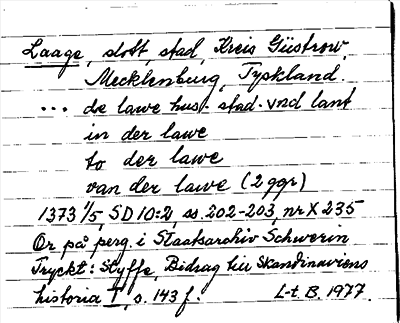 Laage, slott, stad, Kreis Güstrow,
Mecklenburg, Tyskland.
... de lawe hus. stad. vnd lant
in der lawe
to der lawe
van der lawe (2 ggr)
1373 1/5, SD 10:2, ss. 202-203, nr X 235
Or på perg. i Staatsarchiv Schwerin
Tryckt: Styffe, Bidrag till Skandinaviens
historia I, s. 143 f. L-t. B. 1977.